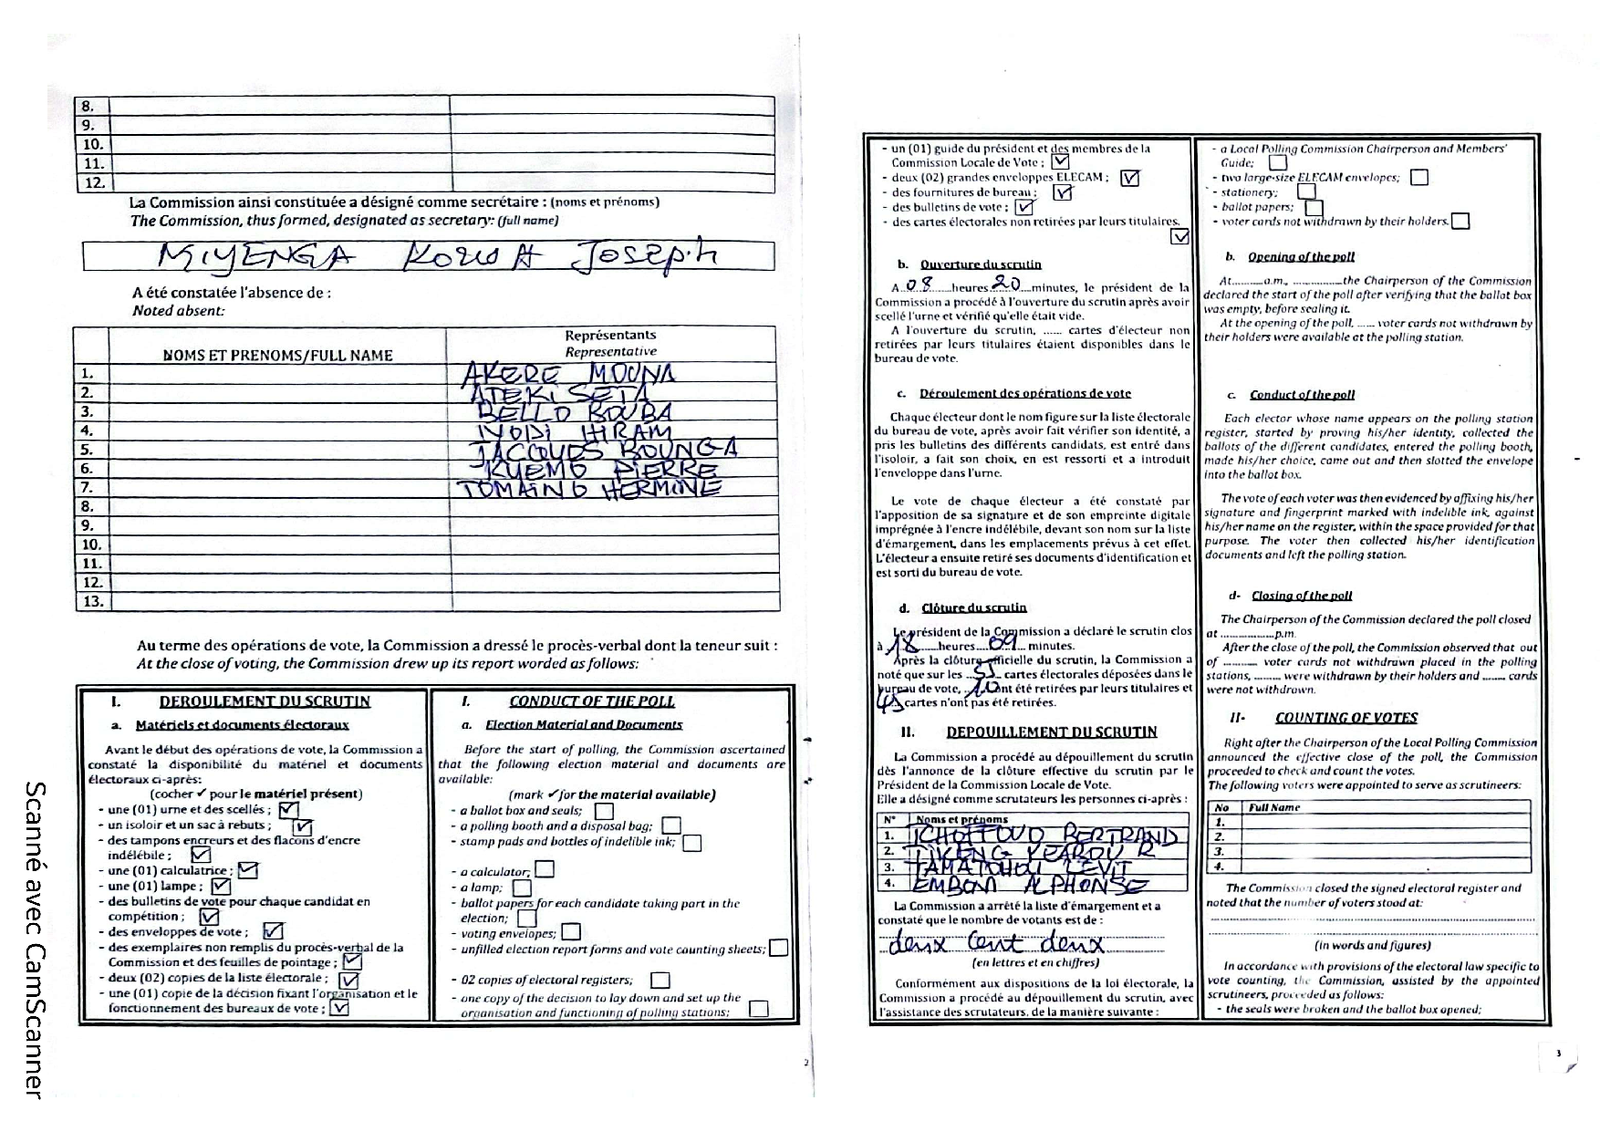 8.
9.
10.
11.
12.
La Commission ainsi constituée a désigné comme secrétaire : (noms et prénoms)
The Commission, thus formed, designated as secretary: (full name)
MIYENGA KOUWA Joseph
A été constatée l'absence de :
Noted absent:
NOMS ET PRENOMS/FULL NAME
Représentants
Representative
1. AKERE MOUNA
2. ATEKI SETA
3. BELLO BOUBA
4. IYODI HIRAM
5. JACQUES BOUNGA
6. KUEMO PIERRE
7. TOMAINO HERMINE
8.
9.
10.
11.
12.
13.
Au terme des opérations de vote, la Commission a dressé le procès-verbal dont la teneur suit :
At the close of voting, the Commission drew up its report worded as follows:
I. DEROULEMENT DU SCRUTIN
a. Matériels et documents électoraux
Avant le début des opérations de vote, la Commission a
constaté la disponibilité du matériel et documents
électoraux ci-après:
(cocher ✓ pour le matériel présent)
- une (01) urne et des scellés ; ☑
- un isoloir et un sac à rebuts ; ☑
- des tampons encreurs et des flacons d'encre
indélébile ; ☑
- une (01) calculatrice ; ☑
- une (01) lampe ; ☑
- des bulletins de vote pour chaque candidat en
compétition ; ☑
- des enveloppes de vote ; ☑
- des exemplaires non remplis du procès-verbal de la
Commission et des feuilles de pointage ; ☑
- deux (02) copies de la liste électorale ; ☑
- une (01) copie de la décision fixant l'organisation et le
fonctionnement des bureaux de vote ; ☑
I. CONDUCT OF THE POLL
a. Election Material and Documents
Before the start of polling, the Commission ascertained
that the following election material and documents are
available:
(mark ✓ for the material available)
- a ballot box and seals; ☐
- a polling booth and a disposal bag; ☐
- stamp pads and bottles of indelible ink; ☐
- a calculator; ☐
- a lamp; ☐
- ballot papers for each candidate taking part in the
election; ☐
- voting envelopes; ☐
- unfilled election report forms and vote counting sheets; ☐
- 02 copies of electoral registers; ☐
- one copy of the decision to lay down and set up the
organisation and functioning of polling stations; ☐
2
- un (01) guide du président et des membres de la
Commission Locale de Vote ; ☑
- deux (02) grandes enveloppes ELECAM ; ☑
- des fournitures de bureau ; ☑
- des bulletins de vote ; ☑
- des cartes électorales non retirées par leurs titulaires.
☑
b. Ouverture du scrutin
A 08 heures 20 minutes, le président de la
Commission a procédé à l'ouverture du scrutin après avoir
scellé l'urne et vérifié qu'elle était vide.
A l'ouverture du scrutin, ...... cartes d'électeur non
retirées par leurs titulaires étaient disponibles dans le
bureau de vote.
c. Déroulement des opérations de vote
Chaque électeur dont le nom figure sur la liste électorale
du bureau de vote, après avoir fait vérifier son identité, a
pris les bulletins des différents candidats, est entré dans
l'isoloir, a fait son choix, en est ressorti et a introduit
l'enveloppe dans l'urne.
Le vote de chaque électeur a été constaté par
l'apposition de sa signature et de son empreinte digitale
imprégnée à l'encre indélébile, devant son nom sur la liste
d'émargement, dans les emplacements prévus à cet effet.
L'électeur a ensuite retiré ses documents d'identification et
est sorti du bureau de vote.
d. Clôture du scrutin
Le président de la Commission a déclaré le scrutin clos
à 18 heures 09 minutes.
Après la clôture officielle du scrutin, la Commission a
noté que sur les 55 cartes électorales déposées dans le
bureau de vote, 10 ont été retirées par leurs titulaires et
45 cartes n'ont pas été retirées.
II. DEPOUILLEMENT DU SCRUTIN
La Commission a procédé au dépouillement du scrutin
dès l'annonce de la clôture effective du scrutin par le
Président de la Commission Locale de Vote.
Elle a désigné comme scrutateurs les personnes ci-après :
N° Noms et prénoms
1. TCHOFFOUO BERTRAND
2. TAKENG YEARDU R
3. TAMATCHOU LEVIT
4. EMBOM ALPHONSE
La Commission a arrêté la liste d'émargement et a
constaté que le nombre de votants est de :
deux cent deux
(en lettres et en chiffres)
Conformément aux dispositions de la loi électorale, la
Commission a procédé au dépouillement du scrutin, avec
l'assistance des scrutateurs, de la manière suivante :
- a Local Polling Commission Chairperson and Members'
Guide; ☐
- two large-size ELECAM envelopes; ☐
- stationery; ☐
- ballot papers; ☐
- voter cards not withdrawn by their holders. ☐
b. Opening of the poll
At..........a.m., ...............the Chairperson of the Commission
declared the start of the poll after verifying that the ballot box
was empty, before sealing it.
At the opening of the poll, ...... voter cards not withdrawn by
their holders were available at the polling station.
c. Conduct of the poll
Each elector whose name appears on the polling station
register, started by proving his/her identity, collected the
ballots of the different candidates, entered the polling booth,
made his/her choice, came out and then slotted the envelope
into the ballot box.
The vote of each voter was then evidenced by affixing his/her
signature and fingerprint marked with indelible ink, against
his/her name on the register, within the space provided for that
purpose. The voter then collected his/her identification
documents and left the polling station.
d- Closing of the poll
The Chairperson of the Commission declared the poll closed
at ................p.m.
After the close of the poll, the Commission observed that out
of .......... voter cards not withdrawn placed in the polling
stations, ......... were withdrawn by their holders and ........ cards
were not withdrawn.
II- COUNTING OF VOTES
Right after the Chairperson of the Local Polling Commission
announced the effective close of the poll, the Commission
proceeded to check and count the votes.
The following voters were appointed to serve as scrutineers:
No Full Name
1.
2.
3.
4.
The Commission closed the signed electoral register and
noted that the number of voters stood at:
(in words and figures)
In accordance with provisions of the electoral law specific to
vote counting, the Commission, assisted by the appointed
scrutineers, proceeded as follows:
- the seals were broken and the ballot box opened;
3
Scanné avec CamScanner